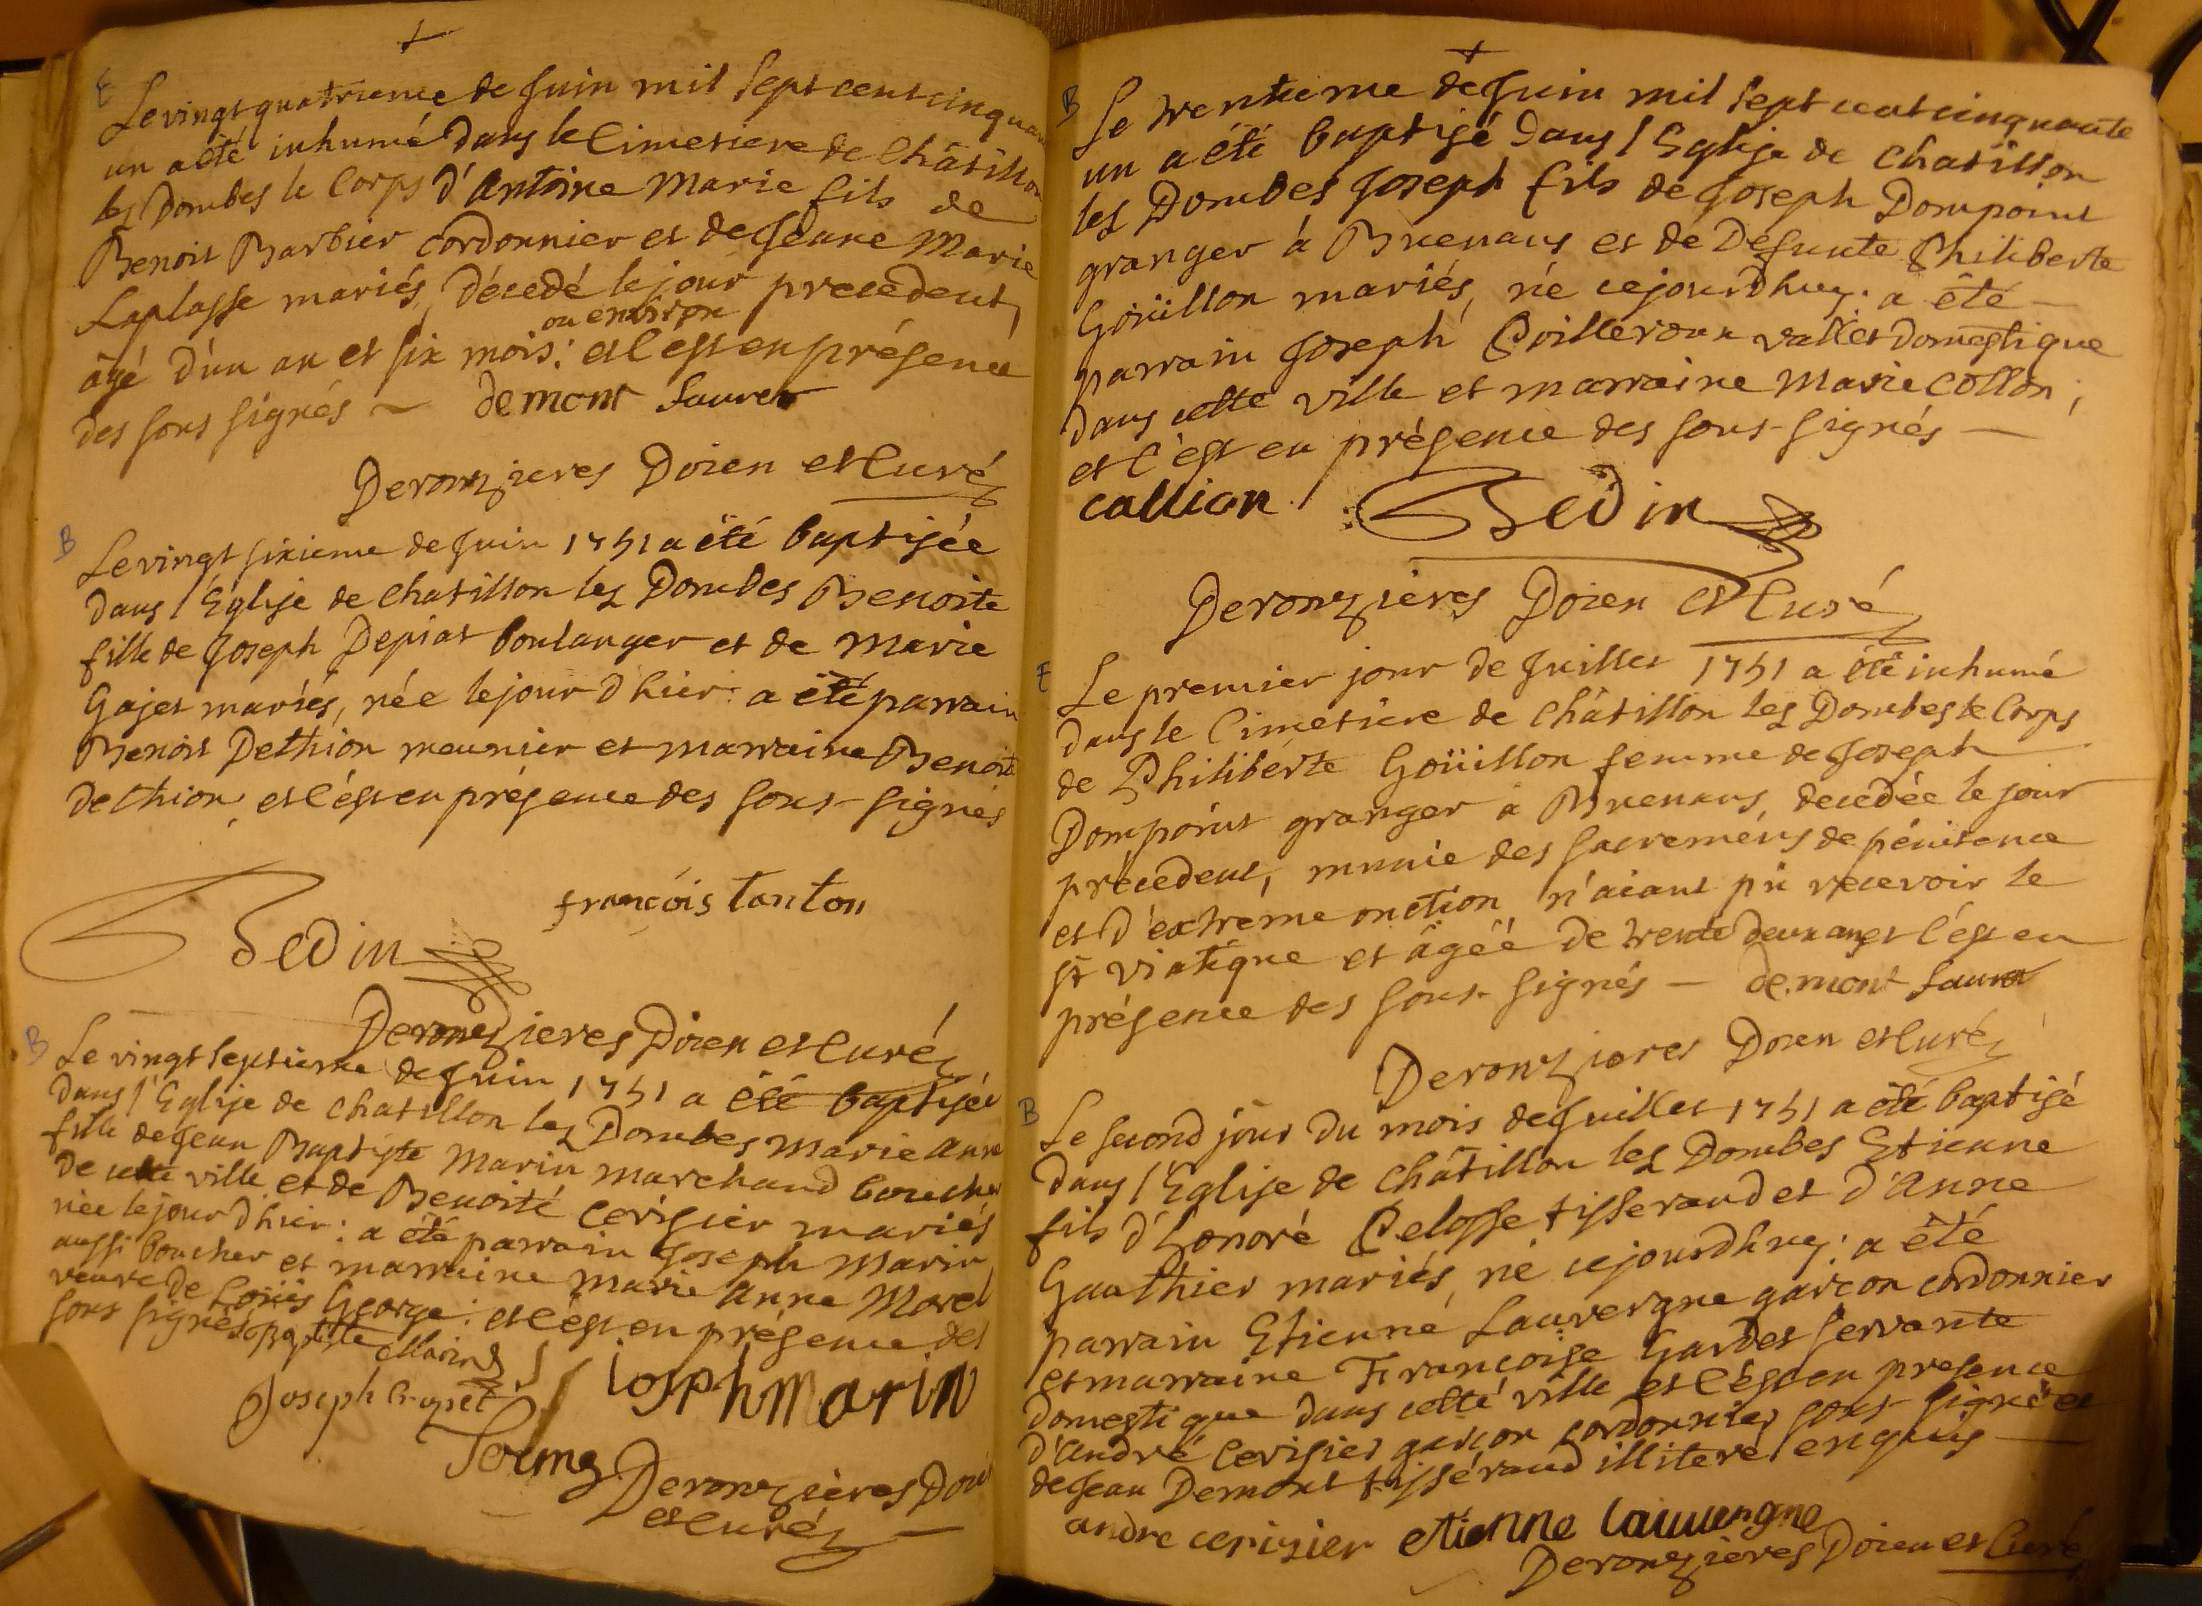 +
E
Le vingt quatrieme de Juin mil sept cent cinquan
un a été inhumé dans le Cimetiere de Châtillon
les Dombes le Corps d'Antoine Marie fils de
Benoit Barbier Cordonnier et de Jeane Marie
Laplasse mariés, décedé le jour precedent,
ou environ
âgé d'un an et six mois: et c'est en présence
des sous signés ~ demont sauver
Deronzieres Doien et Curé
B
Le vingt sixieme de Juin 1751 a été baptisée
dans l'Eglise de Chatillon les Dombes Benoite
fille de Joseph Depiat boulanger et de Marie
Gajet mariés, née le jour d'hier: a été parrain
Benoit Dethion meunier et marraine Benoite
Dethion, et c'est en présence des sous-signés
françois Tanton
Bedin
Deronzieres Doien et Curé
B
Le vingt septieme de Juin 1751 a été baptisée
dans l'Eglise de Chatillon les Dombes Marie Anne
fille de Jean Baptiste Marin marchand boucher
de cette ville et de Benoite Cerisier mariés
née le jour d'hier: a été parrain Joseph Marin
aussi boucher et marraine Marie Anne Morel
veuve de Loüis George: et c'est en présence des
sous signés Baptiste Marin
iosph marin
Joseph
Deronzieres Doi
et curé
+
B
Le trentieme de Juin mil sept cent cinquante
un a été baptisé dans l'Eglise de Chatillon
les Dombes Joseph fils de Joseph Dompoint
granger à Bruenans et de Defunte Philiberte
Goüillon mariés, né cejourdhuy: a été
parrain Joseph Poilleroux vallet domestique
dans cette ville et marraine Marie Collon;
et c'est en présence des sous-signés —
callion Bedin
Deronzieres Doien et Curé
E
Le premier jour de Juillet 1751 a été inhumé
dans le Cimetiere de Châtillon les Dombes le Corps
de Philiberte Goüillon femme de Joseph
Dompoint granger à Bruenans, decedée le jour
précedent, munie des sacremens de pénitence
et d'extrême onction n'aiant pu recevoir le
st viatique et âgée de trente deux ans et c'est en
présence des sous-signés — demont sauver
Deronzieres Doien et Curé
B
Le second jour du mois de Juillet 1751 a été baptisé
dans l'Eglise de Châtillon les Dombes Etienne
fils d'honoré Pelosse tisserand et d'Anne
Gauthier mariés, né cejourdhuy: a été
parrain Etienne Lauvergne garçon cordonnier
et marraine Francoise Gardet servante
domestique dans cette ville et c'est en presence
d'andré Cerisier garçon cordonnier sous-signé et
de Jean Demont tisserand illiteré enquis —
andre cerisier etienne lauvergne
Deronzieres Doien et Curé